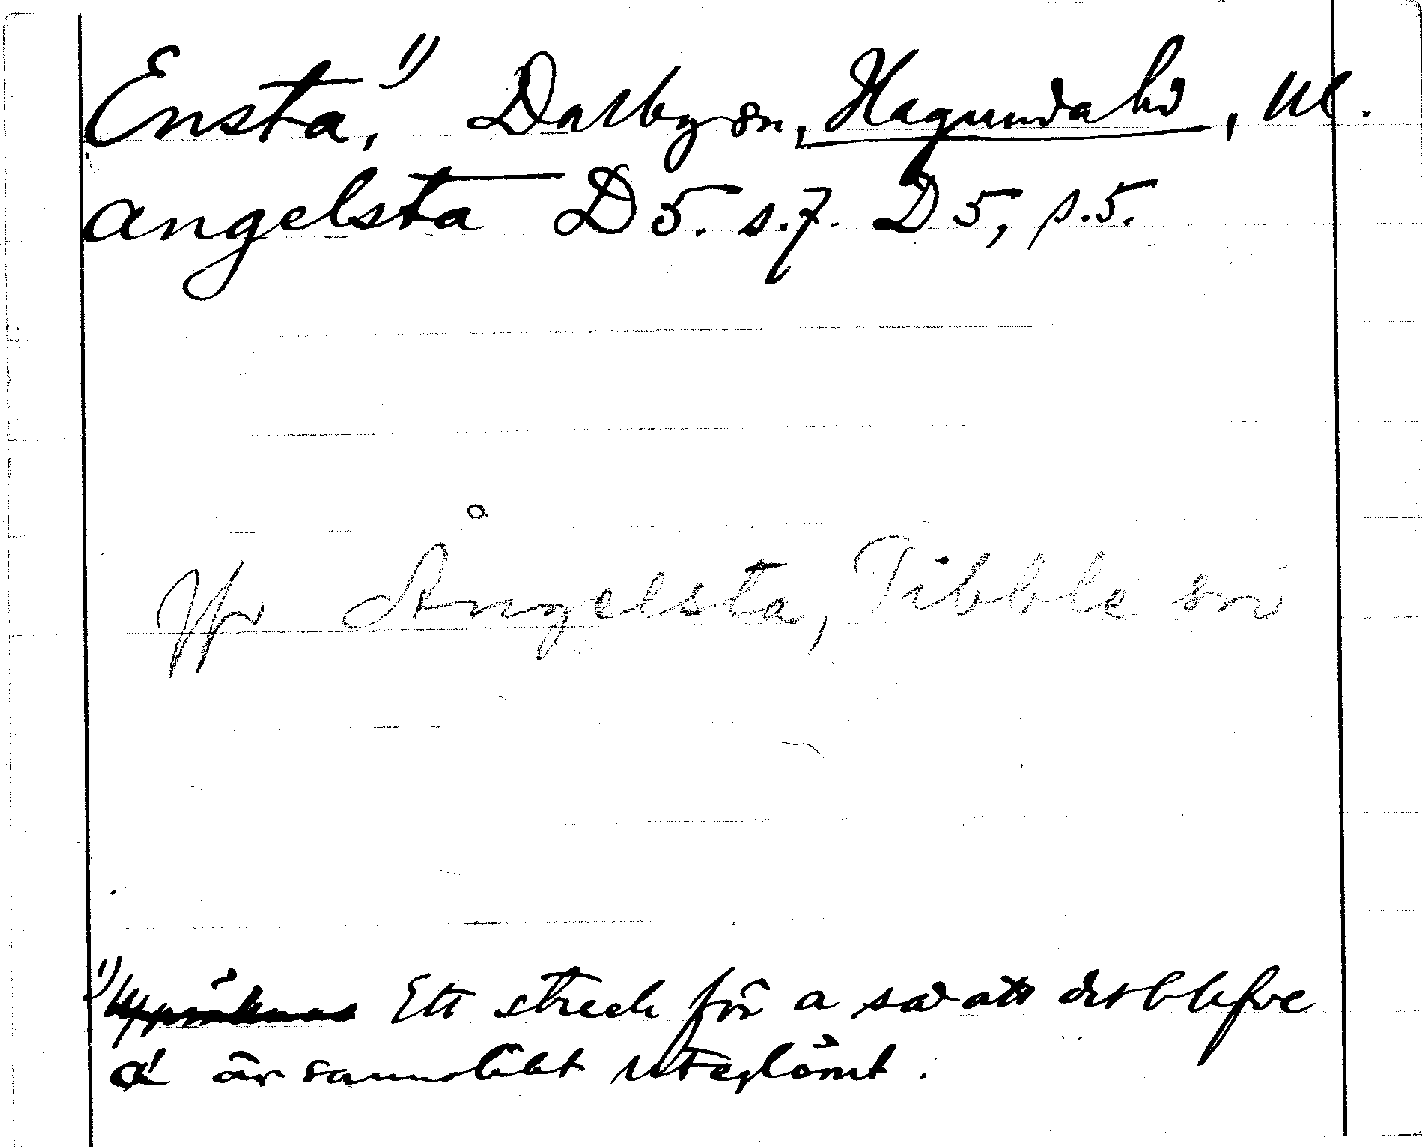 Ensta,¹⁾ Dalby sn, Hagunda hd, Upl.
angelsta D 5. s. 7. D 5, s. 5.
Jfr Ångelsta, Tibble sn
¹⁾ Ett streck för a så att det blefve
á är sannolikt uteglömt.